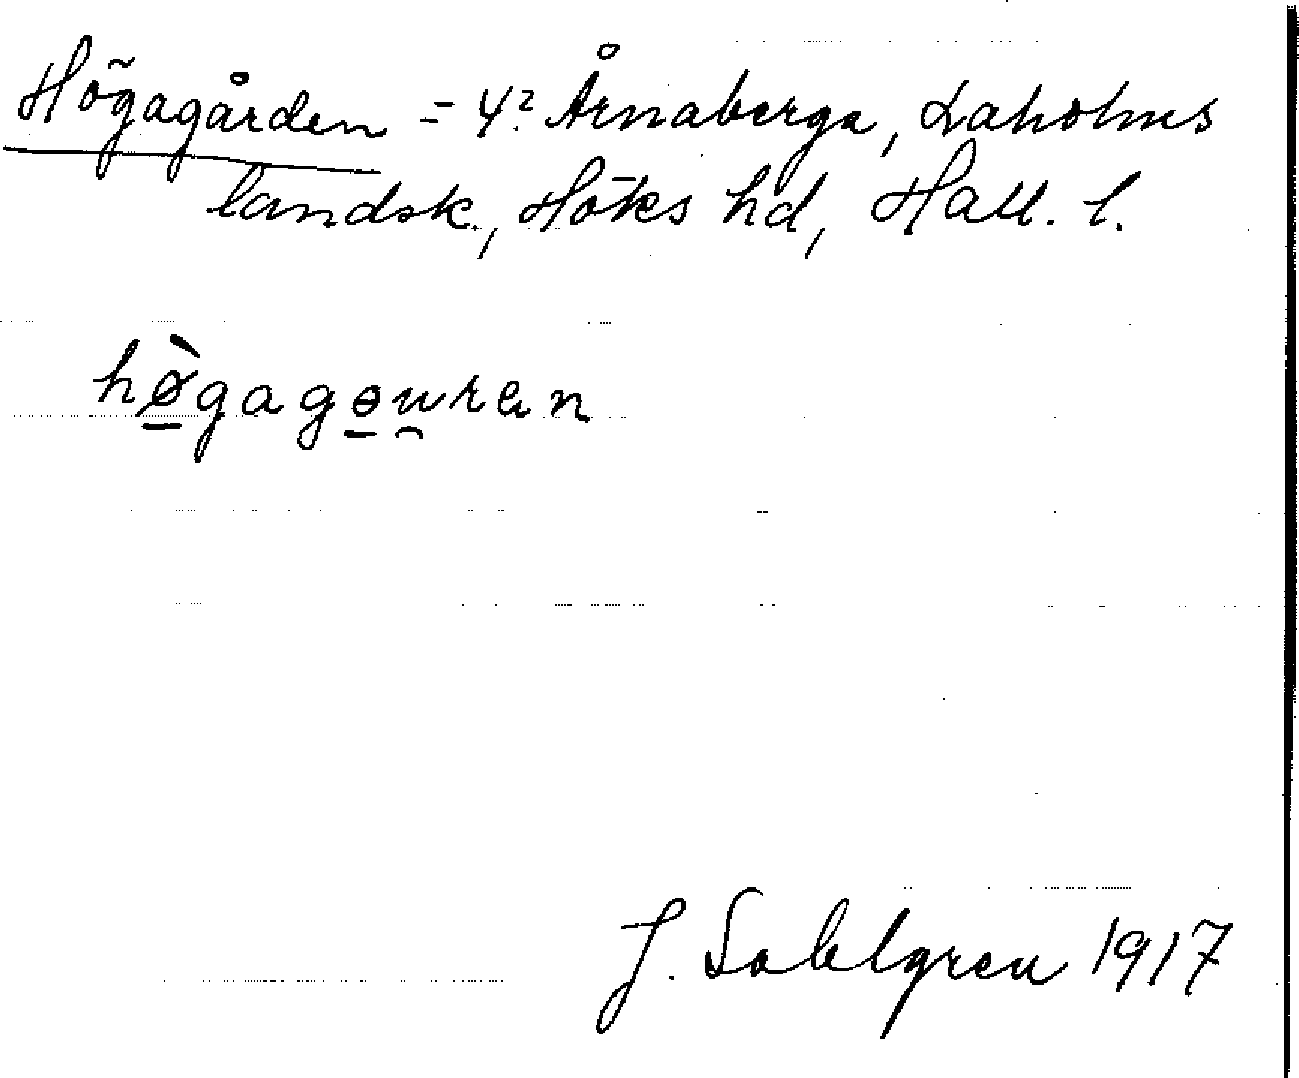 Högagården = 4? Årnaberga, Laholms
landsk., Höks hd, Hall. l.
hø̠̀gagɵ̠u̯rɐn
J. Sahlgren 1917